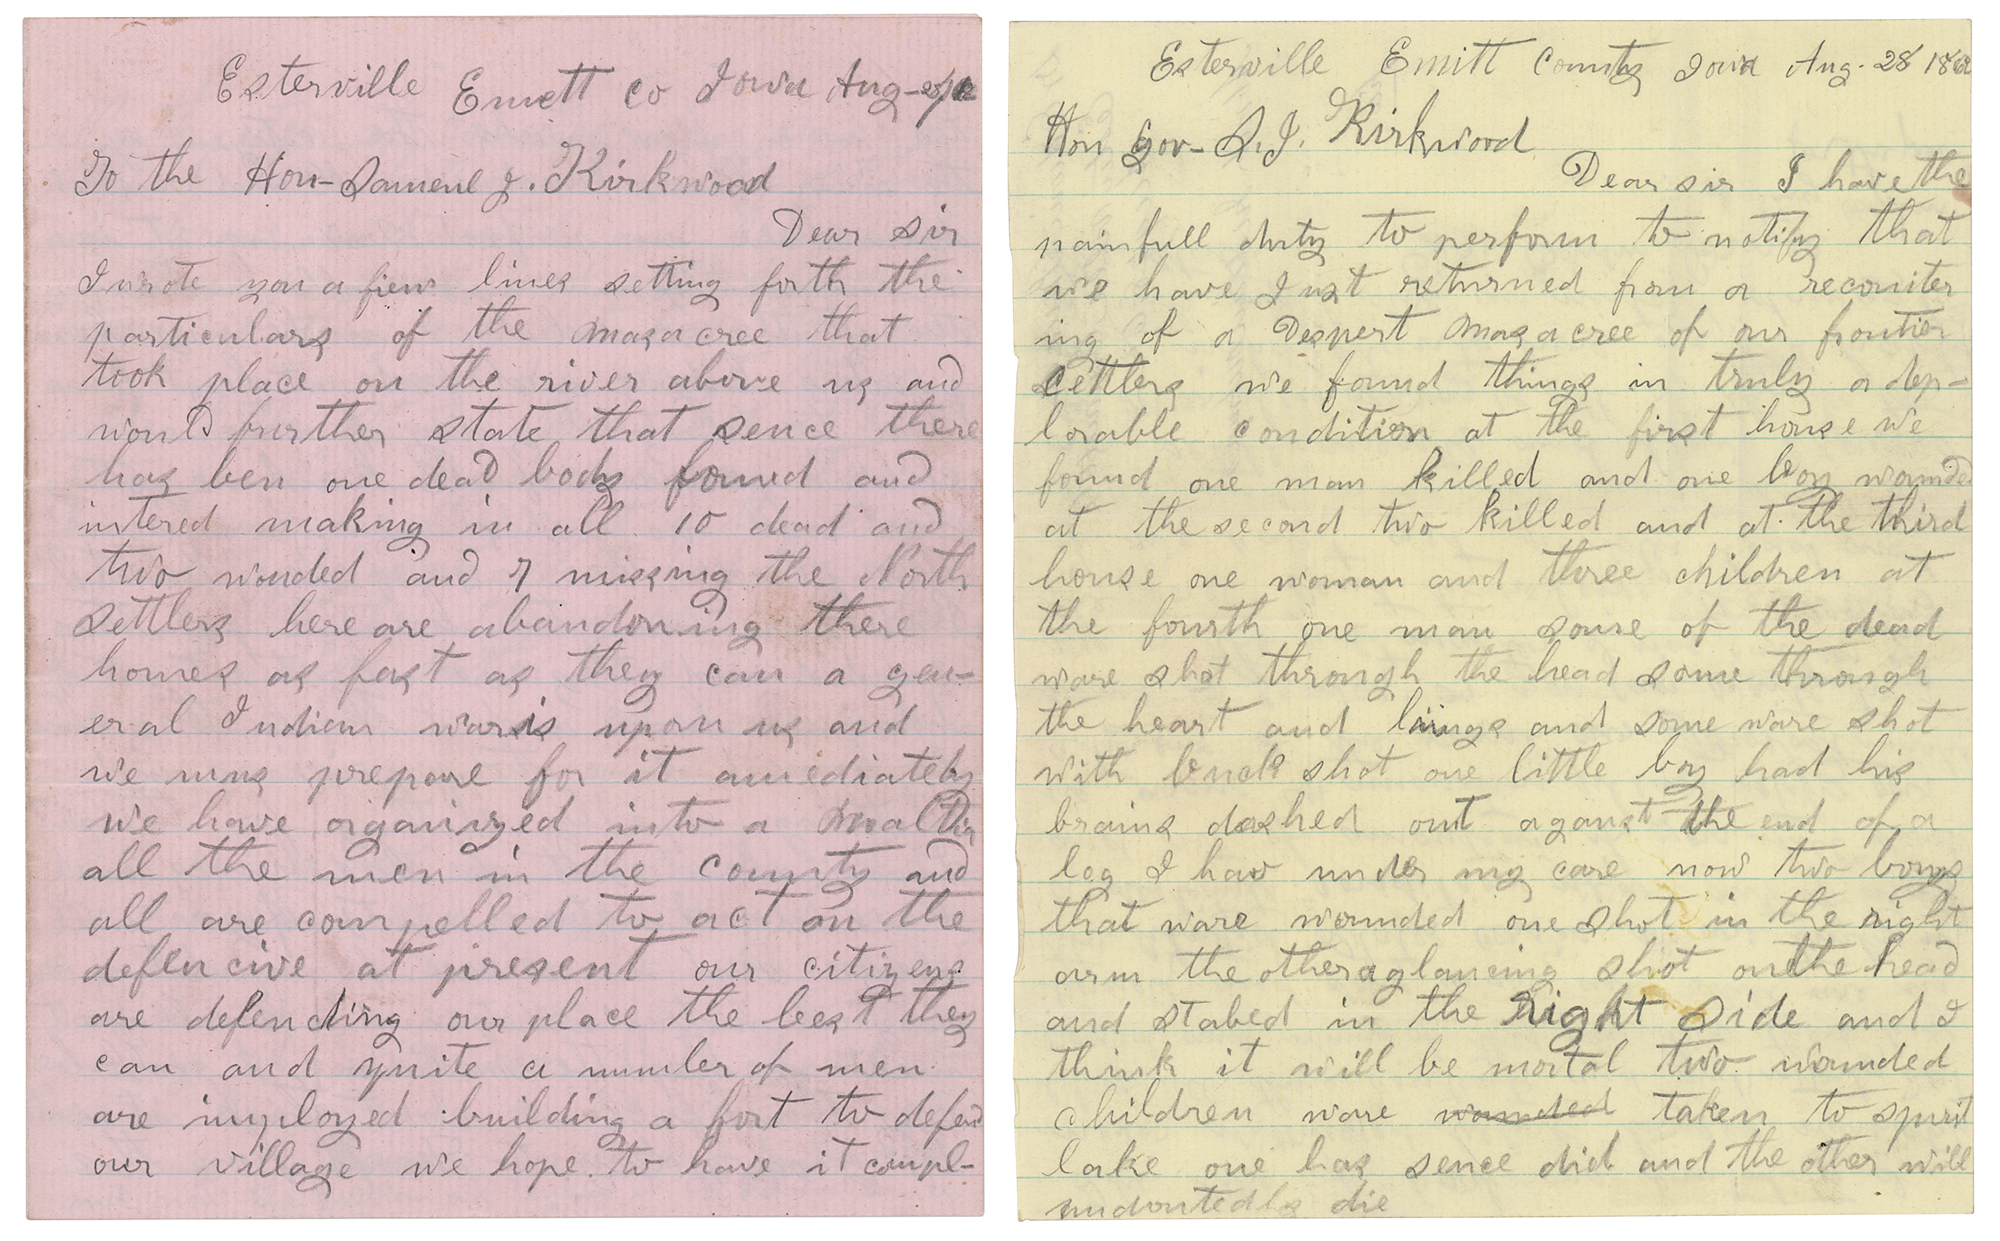 Esterville Emett co Iowa Aug-
To the Hon-Sameul J. Kirkwood
Dear sir
I wrote you a fiew lines setting forth the
particulars of the masacree that
took place on the river above us and
would further state that sence there
has ben one dead body found and
intered making in all 10 dead and
two wonded and 7 missing the North
settlers here are abandoning there
homes as fast as they can a gen-
eral Indian war is upon us and
we mus prepare for it amediately
we have organized into a
all the men in the county and
all are compelled to act on the
defencive at present our citizens
are defending our place the best they
can and quite a number of men
are imployed building a fort to defend
our village we hope to have it compl-
Esterville Emitt County Iowa Aug. 28 1862
Hon Gov- S.J. Kirkwood
Dear sir I have the
painfull duty to perform to notify that
we have Just returned from a reconiter
ing of a Despert masacree of our frontier
Cettlers we found things in truly a dep-
lorable condition at the first house we
found one man killed and one boy wounded
at the second two killed and at the third
house one woman and three children at
the fourth one man some of the dead
ware shot through the head some through
the heart and lungs and some ware shot
with buck shot one little boy had his
brains dashed out aganst the end of a
log I hav under my care now two boys
that ware wounded one shot in the right
arm the other a glancing shot on the head
and stabed in the right side and I
think it will be mortal two wounded
children ware wounded taken to spirit
lake one has sence did and the other will
undoutedly die